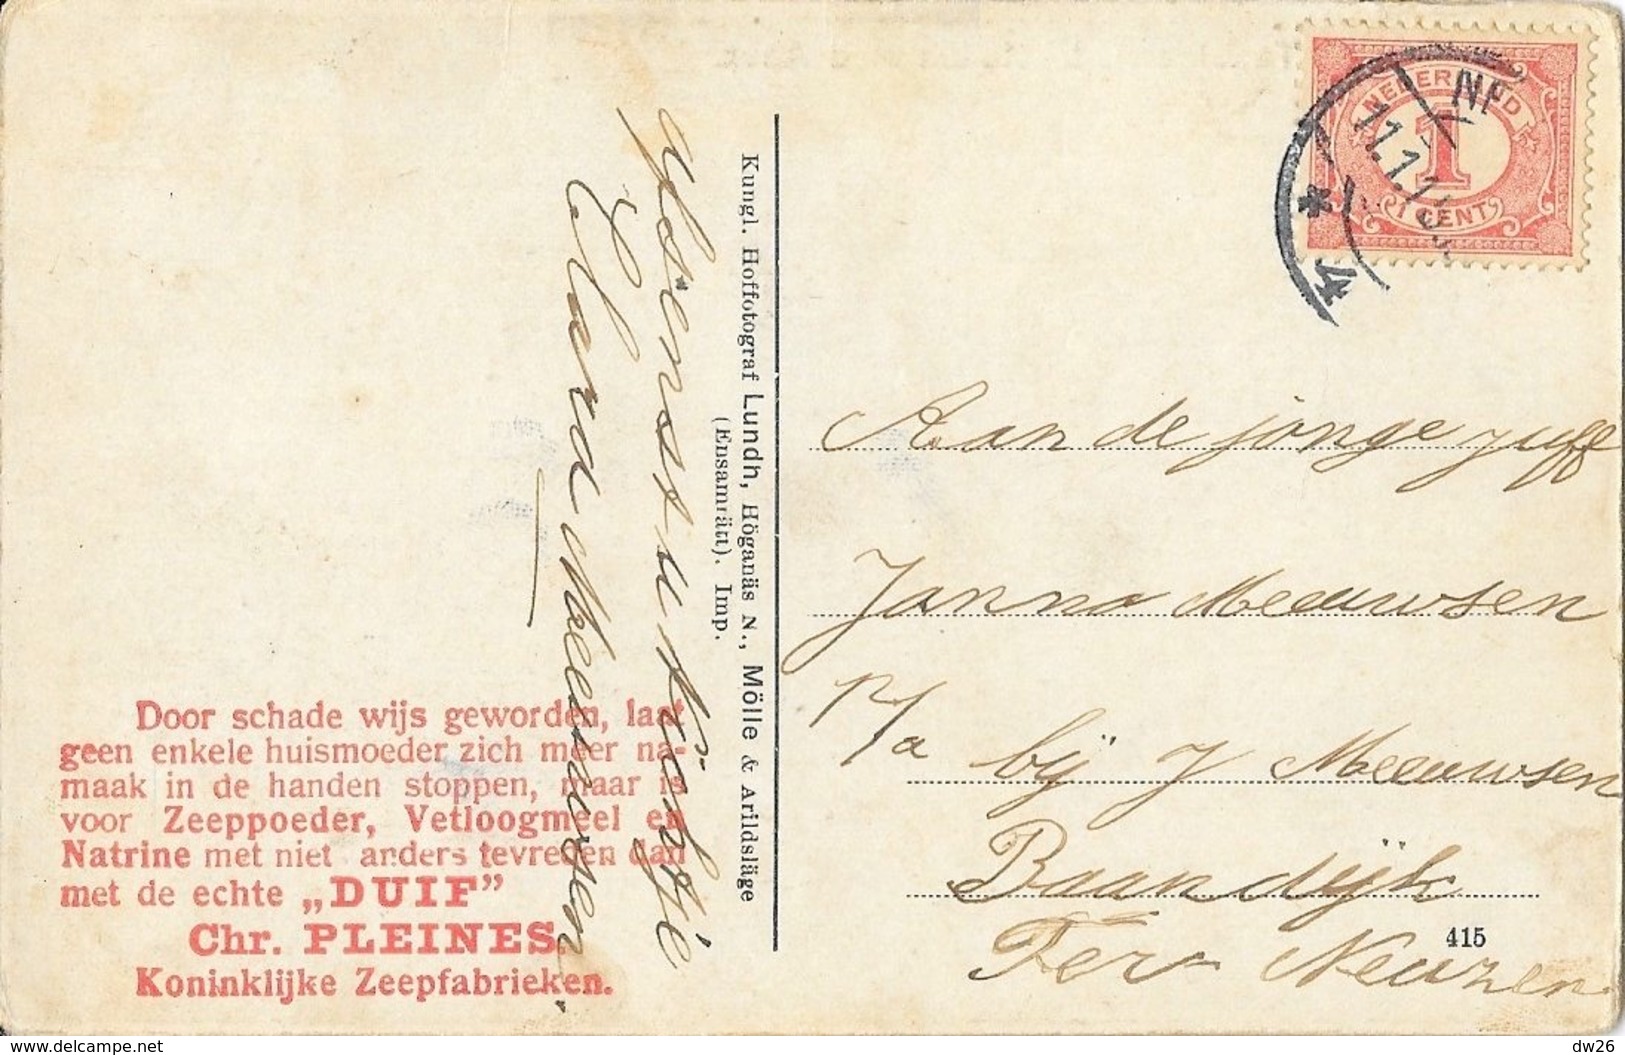 NEDERLAND
1
1 CENT
4
Afsienssukiekje
Clara Meeuwsen
Kungl. Hoffotograf Lundh, Höganäs N., Mölle & Arildsläge
(Ensamrätt). Imp.
Aan de jonge juff
Janna Meeuwsen
p/a bij J Meeuwsen
Baandijk
Ter Neuzen
415
Door schade wijs geworden, laat
geen enkele huismoeder zich meer na-
maak in de handen stoppen, maar is
voor Zeeppoeder, Vetloogmeel en
Natrine met niet anders tevreden dan
met de echte „DUIF”
Chr. PLEINES.
Koninklijke Zeepfabrieken.
www.delcampe.net
dw26